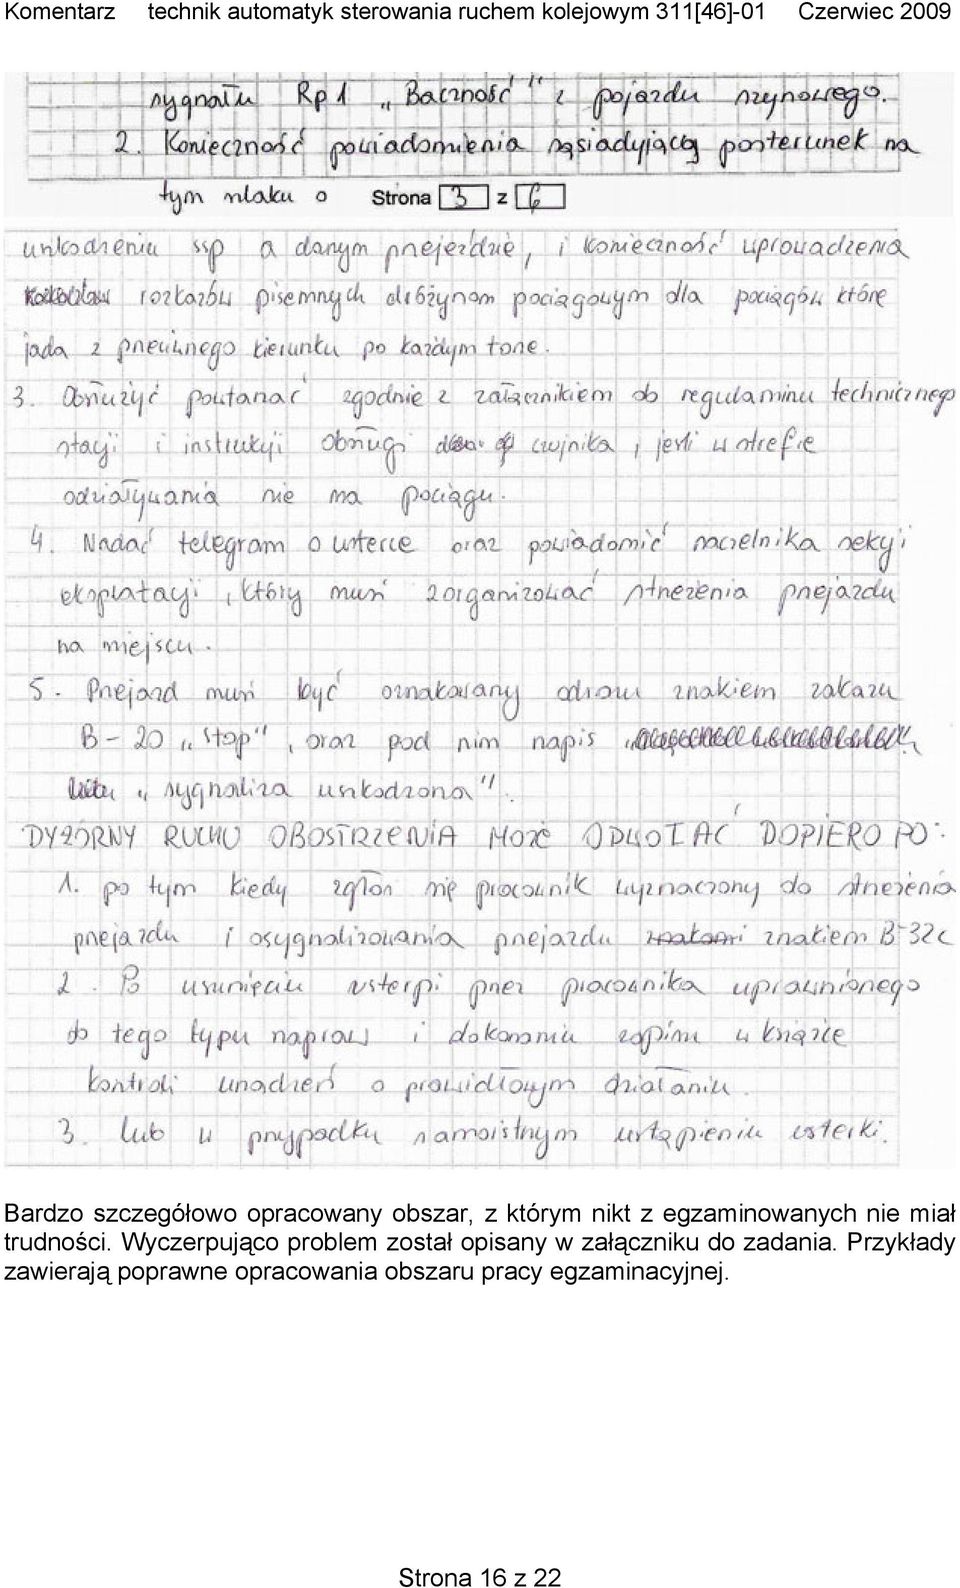 Komentarz technik automatyk sterowania ruchem kolejowym 311[46]-01 Czerwiec 2009
sygnału Rp1 „Baczność" z pojazdu szynowego.
2. Konieczność powiadomienia sąsiadującą posterunek na
tym szlaku o Strona 3 z 6
uszkodzeniu ssp a danym przejeździe, i konieczność uprowadzenia
rozkazów pisemnych drużynom pociągowym dla pociągów które
jada z przeciwnego kierunku po każdym torze.
3. Obsłużyć powtarzać zgodnie z załącznikiem do regulaminu technicznego
stacji i instrukcji obsługi czujnika, jeśli w strefie
oddziaływania nie ma pociągu.
4. Nadać telegram o usterce oraz powiadomić naczelnika sekcji
eksploatacji, który musi zorganizować strzeżenia przejazdu
na miejscu.
5. Przejazd musi być oznakowany znakiem zakazu
B-20 „stop", oraz pod nim napis
„sygnaliza uszkodzona".
DYŻÓRNY RUCHU OBOSTRZENIA MOŻE ODWOŁAĆ DOPIERO PO:
1. po tym kiedy zgłosi się pracownik wyznaczony do strzeżenia
przejazdu i osygnalizowania przejazdu znakami znakiem B-32c
2. Po usunięciu usterki przez pracownika uprawnionego
do tego typu napraw i dokonaniu zapisu w książce
kontroli urządzeń o prawidłowym działaniu.
3. lub w przypadku samoistnym ustąpieniu usterki.
Bardzo szczegółowo opracowany obszar, z którym nikt z egzaminowanych nie miał
trudności. Wyczerpująco problem został opisany w załączniku do zadania. Przykłady
zawierają poprawne opracowania obszaru pracy egzaminacyjnej.
Strona 16 z 22